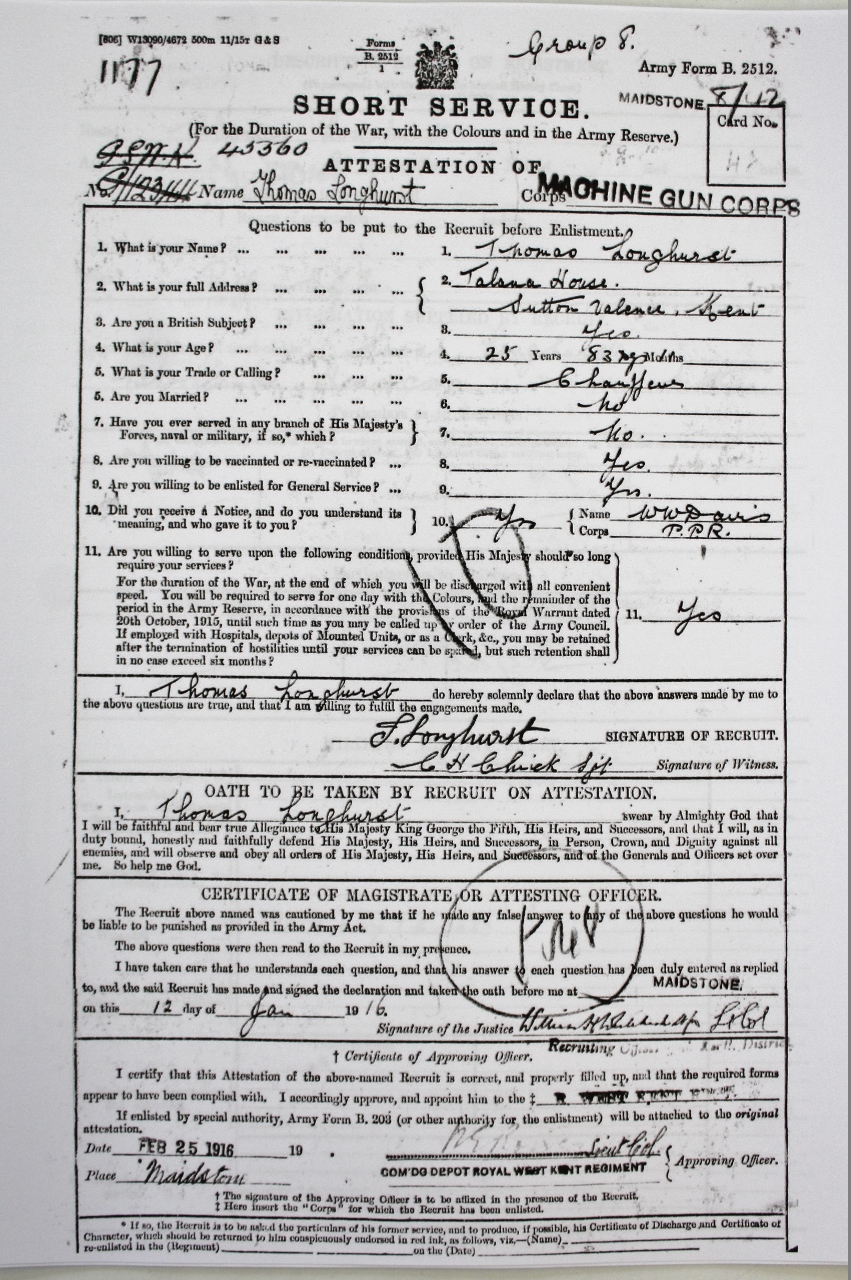 [806] W13090/4672 500m 11/15T G & S
Forms
B. 2512
1
Group 8.
Army Form B. 2512.
1177
MAIDSTONE
8/12
SHORT SERVICE.
Card No.
(For the Duration of the War, with the Colours and in the Army Reserve.)
45360
ATTESTATION OF
No. Name Thomas Longhurst Corps MACHINE GUN CORPS
Questions to be put to the Recruit before Enlistment.
1. What is your Name? ... ... ... ... 1. Thomas Longhurst
2. What is your full Address? ... ... ... ... 2. Talana House.
Sutton Valence, Kent
3. Are you a British Subject? ... ... ... ... 3. Yes.
4. What is your Age? ... ... ... ... 4. 25 Years Months
5. What is your Trade or Calling? ... ... ... 5. Chauffeur
5. Are you Married? ... ... ... ... ... 6. No
7. Have you ever served in any branch of His Majesty's
Forces, naval or military, if so,* which? 7. No.
8. Are you willing to be vaccinated or re-vaccinated? ... 8. Yes.
9. Are you willing to be enlisted for General Service? ... 9. Yes.
10. Did you receive a Notice, and do you understand its
meaning, and who gave it to you? 10. Yes Name W W Davis
Corps P.P.R.
11. Are you willing to serve upon the following conditions, provided His Majesty should so long
require your services?
For the duration of the War, at the end of which you will be discharged with all convenient
speed. You will be required to serve for one day with the Colours, and the remainder of the
period in the Army Reserve, in accordance with the provisions of the Royal Warrant dated
20th October, 1915, until such time as you may be called up by order of the Army Council. 11. Yes
If employed with Hospitals, depots of Mounted Units, or as a Clerk, &c., you may be retained
after the termination of hostilities until your services can be spared, but such retention shall
in no case exceed six months?
I, Thomas Longhurst do hereby solemnly declare that the above answers made by me to
the above questions are true, and that I am willing to fulfil the engagements made.
T. Longhurst SIGNATURE OF RECRUIT.
C H Chick Sjt Signature of Witness.
OATH TO BE TAKEN BY RECRUIT ON ATTESTATION.
I, Thomas Longhurst swear by Almighty God that
I will be faithful and bear true Allegiance to His Majesty King George the Fifth, His Heirs, and Successors, and that I will, as in
duty bound, honestly and faithfully defend His Majesty, His Heirs, and Successors, in Person, Crown, and Dignity against all
enemies, and will observe and obey all orders of His Majesty, His Heirs, and Successors, and of the Generals and Officers set over
me. So help me God.
CERTIFICATE OF MAGISTRATE OR ATTESTING OFFICER.
The Recruit above named was cautioned by me that if he made any false answer to any of the above questions he would
be liable to be punished as provided in the Army Act.
The above questions were then read to the Recruit in my presence.
I have taken care that he understands each question, and that his answer to each question has been duly entered as replied
to, and the said Recruit has made and signed the declaration and taken the oath before me at MAIDSTONE
on this 12 day of Jan 1916.
Signature of the Justice Lt Col
Recruiting District
† Certificate of Approving Officer.
I certify that this Attestation of the above-named Recruit is correct, and properly filled up, and that the required forms
appear to have been complied with. I accordingly approve, and appoint him to the ‡ R. WEST KENT
If enlisted by special authority, Army Form B. 203 (or other authority for the enlistment) will be attached to the original
attestation.
Date FEB 25 1916 19 . Lieut Col.
Place Maidstone COM'DG DEPOT ROYAL WEST KENT REGIMENT Approving Officer.
† The signature of the Approving Officer is to be affixed in the presence of the Recruit.
‡ Here insert the "Corps" for which the Recruit has been enlisted.
* If so, the Recruit is to be asked the particulars of his former service, and to produce, if possible, his Certificate of Discharge and Certificate of
Character, which should be returned to him conspicuously endorsed in red ink, as follows, viz.—(Name)
re-enlisted in the (Regiment) on the (Date)